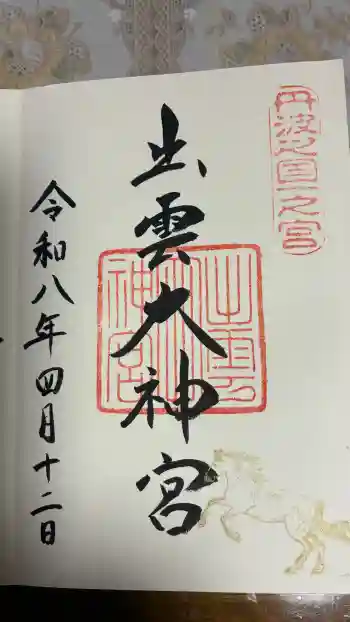 丹波之國一之宮
出雲大神宮
出雲大神宮
令和八年四月十二日